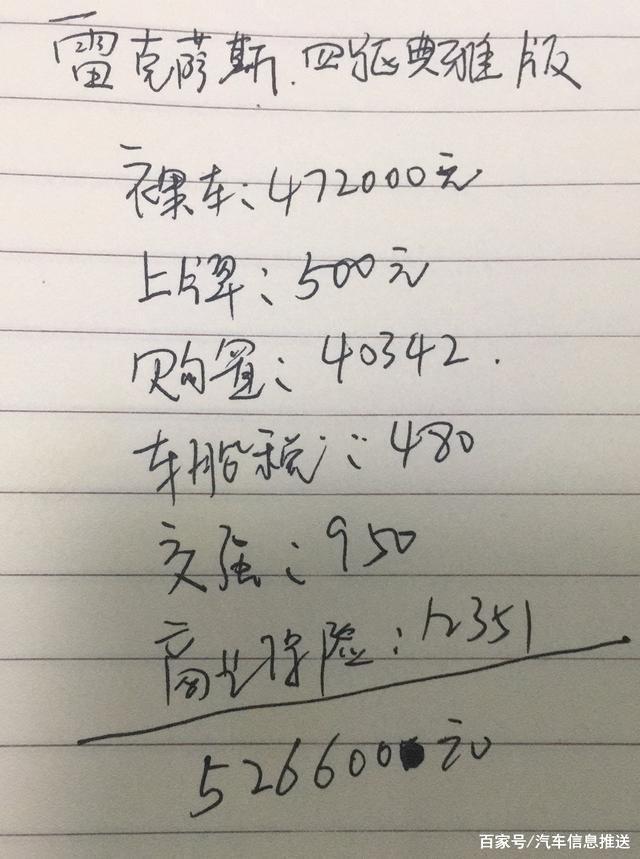 雷克萨斯.四驱典雅版
裸车:472000元
上牌:500元
购置:40342.
车船税:480
交强:950
商业保险:12351
526600元
百家号/汽车信息推送